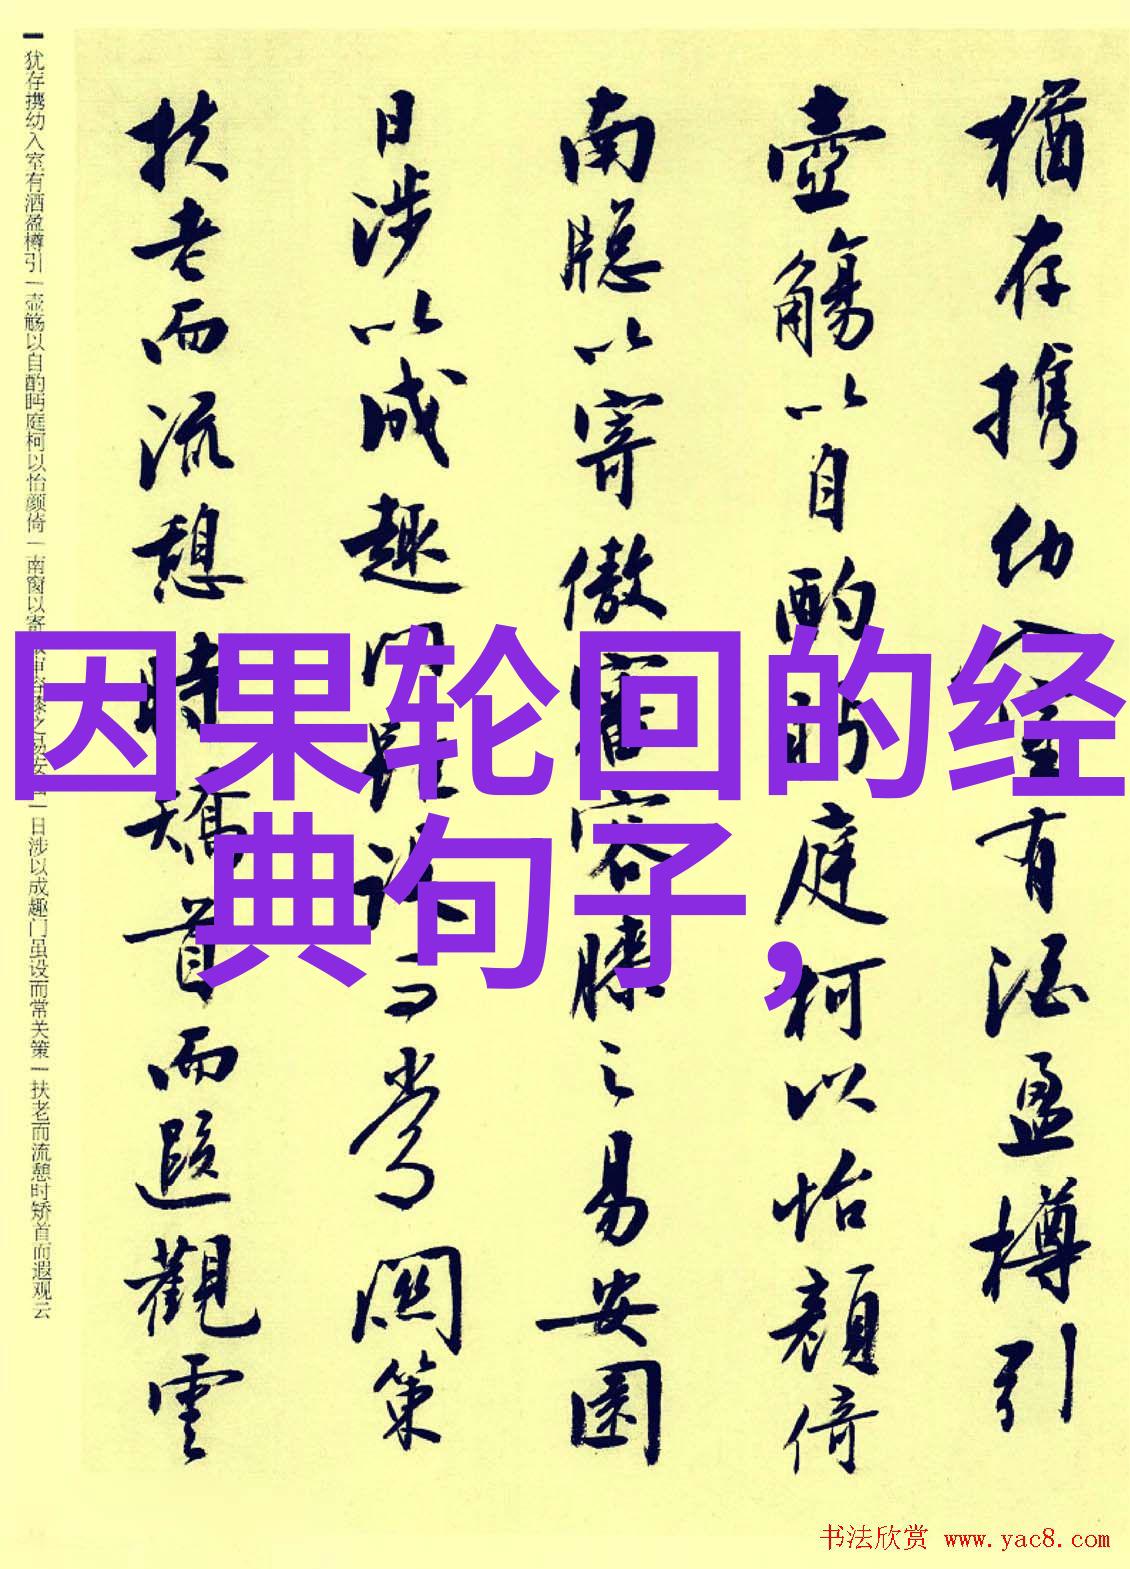 因果轮回的经
典句子，
猶存携幼入室有酒盈樽引
壺觴以自酌眄庭柯以怡顔倚
南牕以寄傲審容膝之易安園
日涉以成趣門雖設而常關策
扶老而流憩時矯首而遐觀雲
犹存携幼入室有洒盈樽引|壶觞以自酌眄庭柯以怡颜倚|南窗以寄傲审容膝之易安园|日涉以成趣门虽设而常关策|扶老而流憩时矫首而遐观云
书法欣赏 www.yac8.com